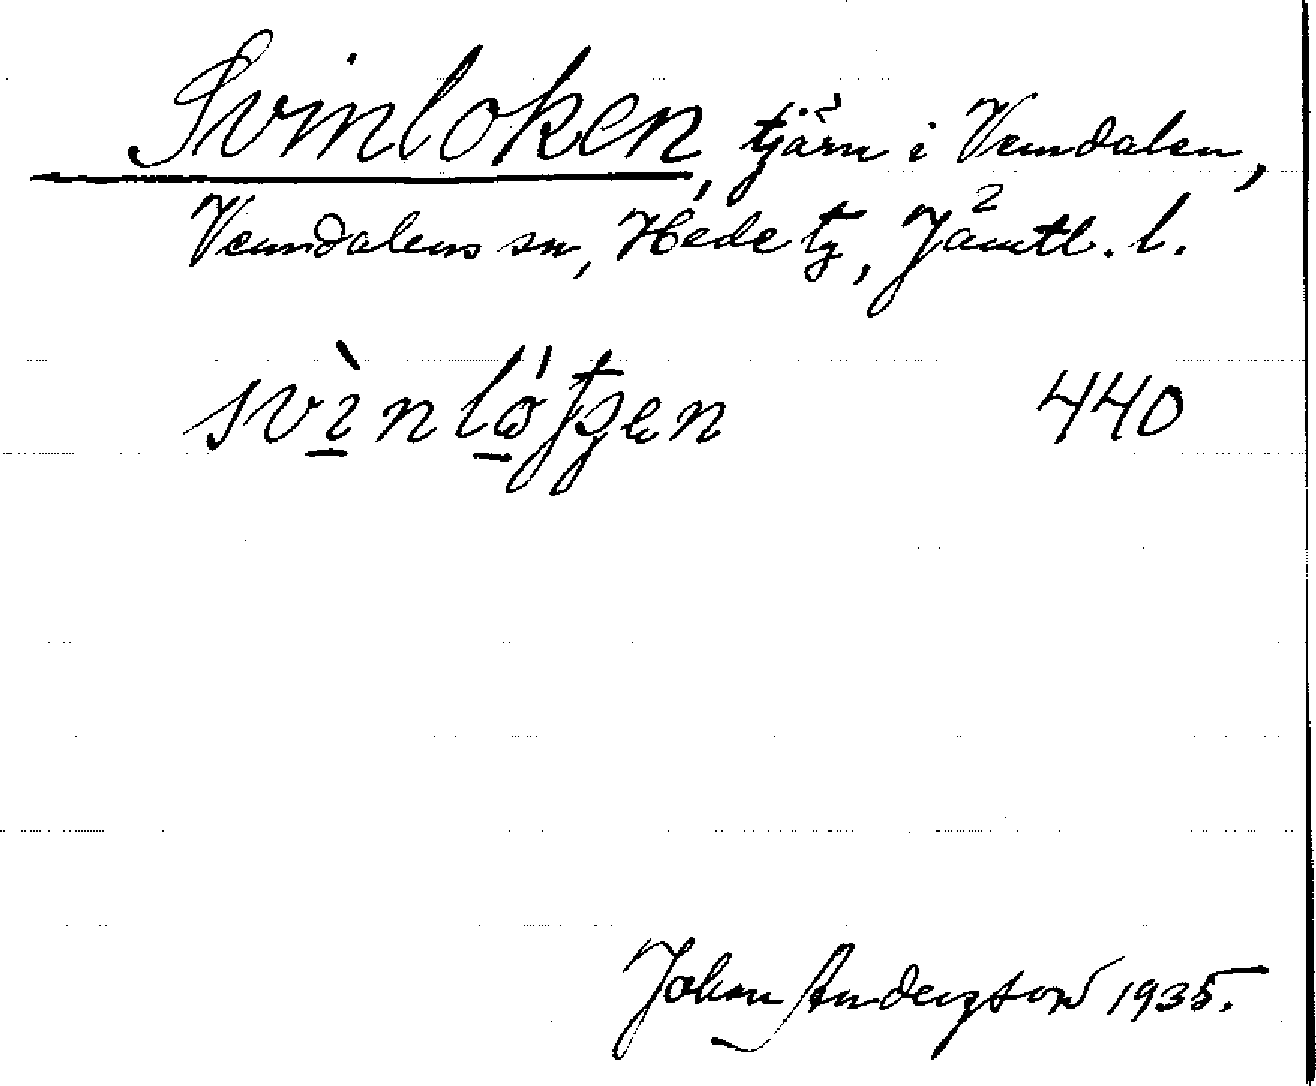 Svinloken, tjärn i Vemdalen,
Vemdalens sn, Hede tg, Jämtl. l.
440
Johan Andersson 1935.